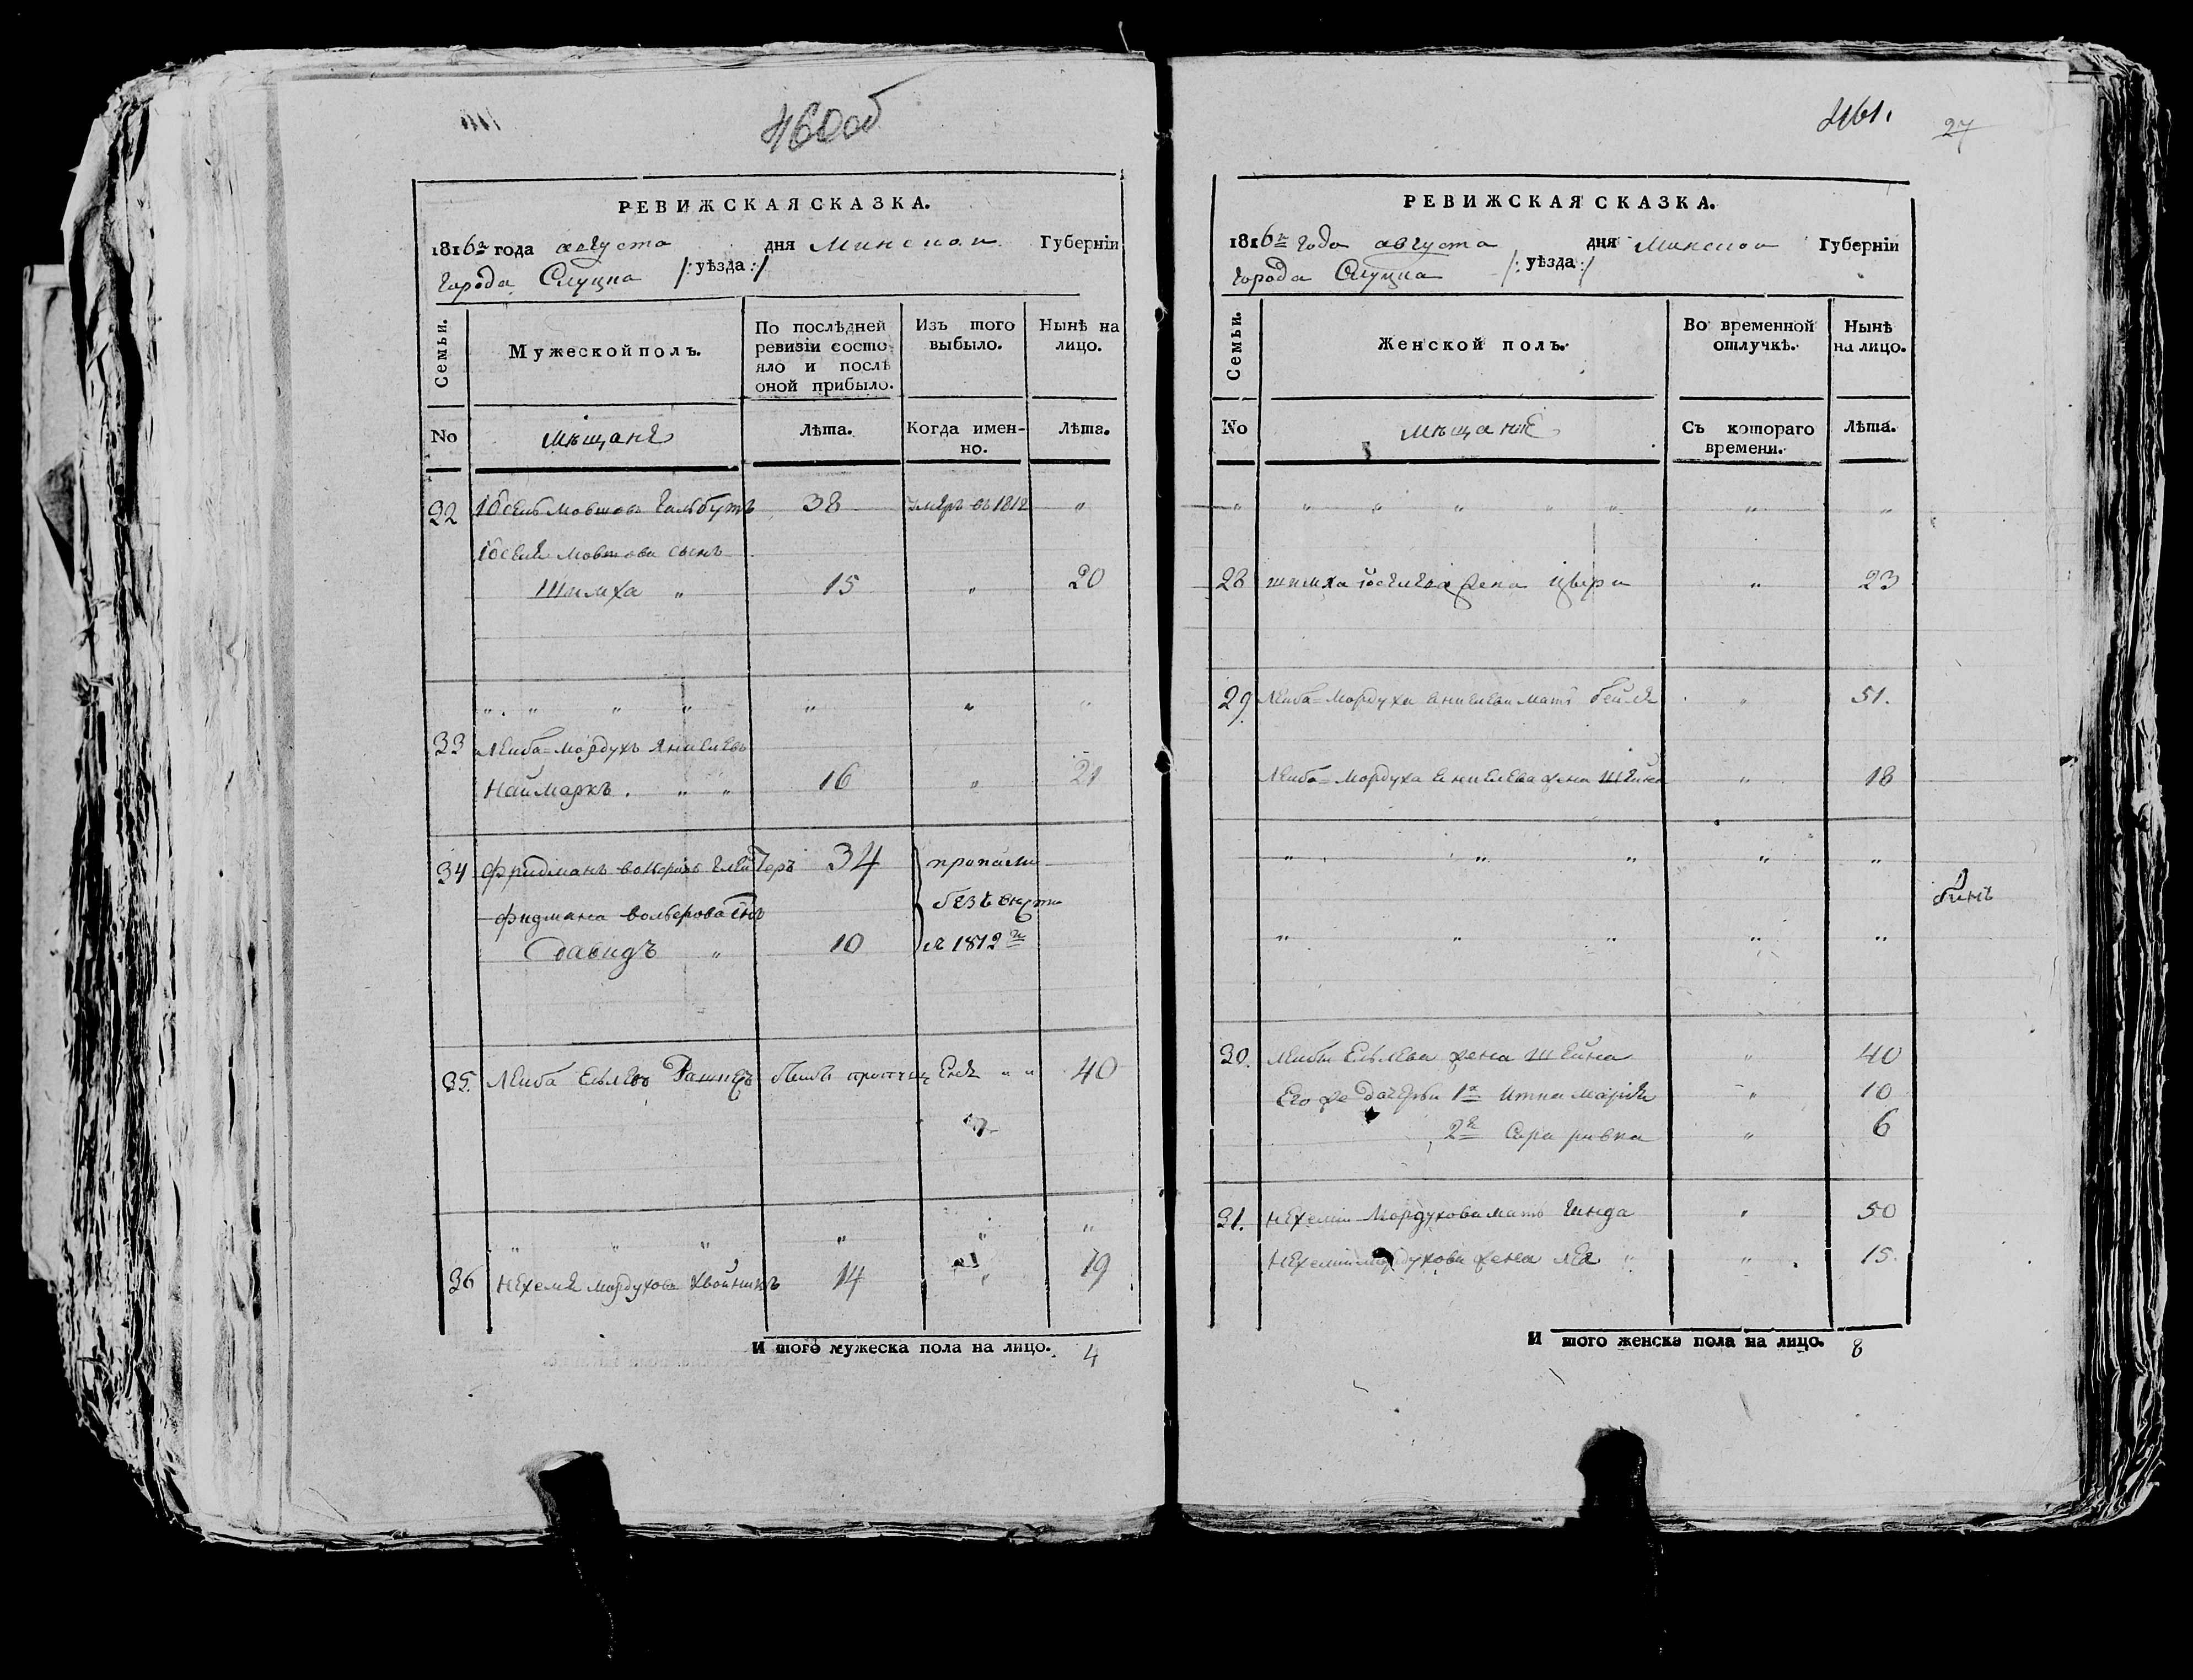 460об
РЕВИЖСКАЯ СКАЗКА.
1816го года августа дня Минской Губерніи
города Слуцка /: уѣзда :/
Семьи.
Мужеской полъ.
По послѣдней ревизіи состояло и послѣ оной прибыло.
Изъ того выбыло.
Нынѣ на лицо.
No
мѣщанѣ
Лѣта.
Когда именно.
Лѣта.
32 Іосель Мовшовъ Гальбутъ 38 умеръ въ 1812 "
Іоселя Мовшова сынъ
Шимха " 15 " 20
" " " " " " "
33 Лейба-Мордухъ Янкелевъ
Наймаркъ. " " 16 " 21
34 Фридманъ Вольеровъ 34 пропали
Вольерова сынъ безъ вѣсти
Давидъ " 10 1812го
35. Лейба Ельевъ " " 40
" " " " " "
36 Нехемя Мордуховъ Хвойникъ 14 " 19
И того мужеска пола на лицо. 4
461.
27
РЕВИЖСКАЯ СКАЗКА.
1816го года августа дня Минской Губерніи
города Слуцка /: уѣзда :/
Семьи.
Женской полъ.
Во временной отлучкѣ.
Нынѣ на лицо.
No
мѣщанѣ
Съ котораго времени.
Лѣта.
" " " " " " " "
28 Шимха Іоселева жена Цыра " 23
29 Лейба-Мордуха Янкелева мать Бейля " 51.
Лейба-Мордуха Янкелева жена Шейна " 18
" " " " "
" " " " "
30. Лейбы Ельева жена Шейна " 40
Его же дочери 1я Итка " 10
2я Сора Ривка " 6
31. Нехеміи Мордухова мать Гинда " 50
Нехеміи Мордухова жена Лея " " 15.
И того женска пола на лицо. 8